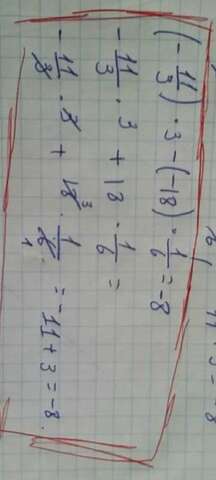 (-11/3) · 3 - (-18) · 1/6 = -8
-11/3 · 3 + 18 · 1/6 =
-11/3 · 3 + 18 3 · 1/6 1 = -11 + 3 = -8.